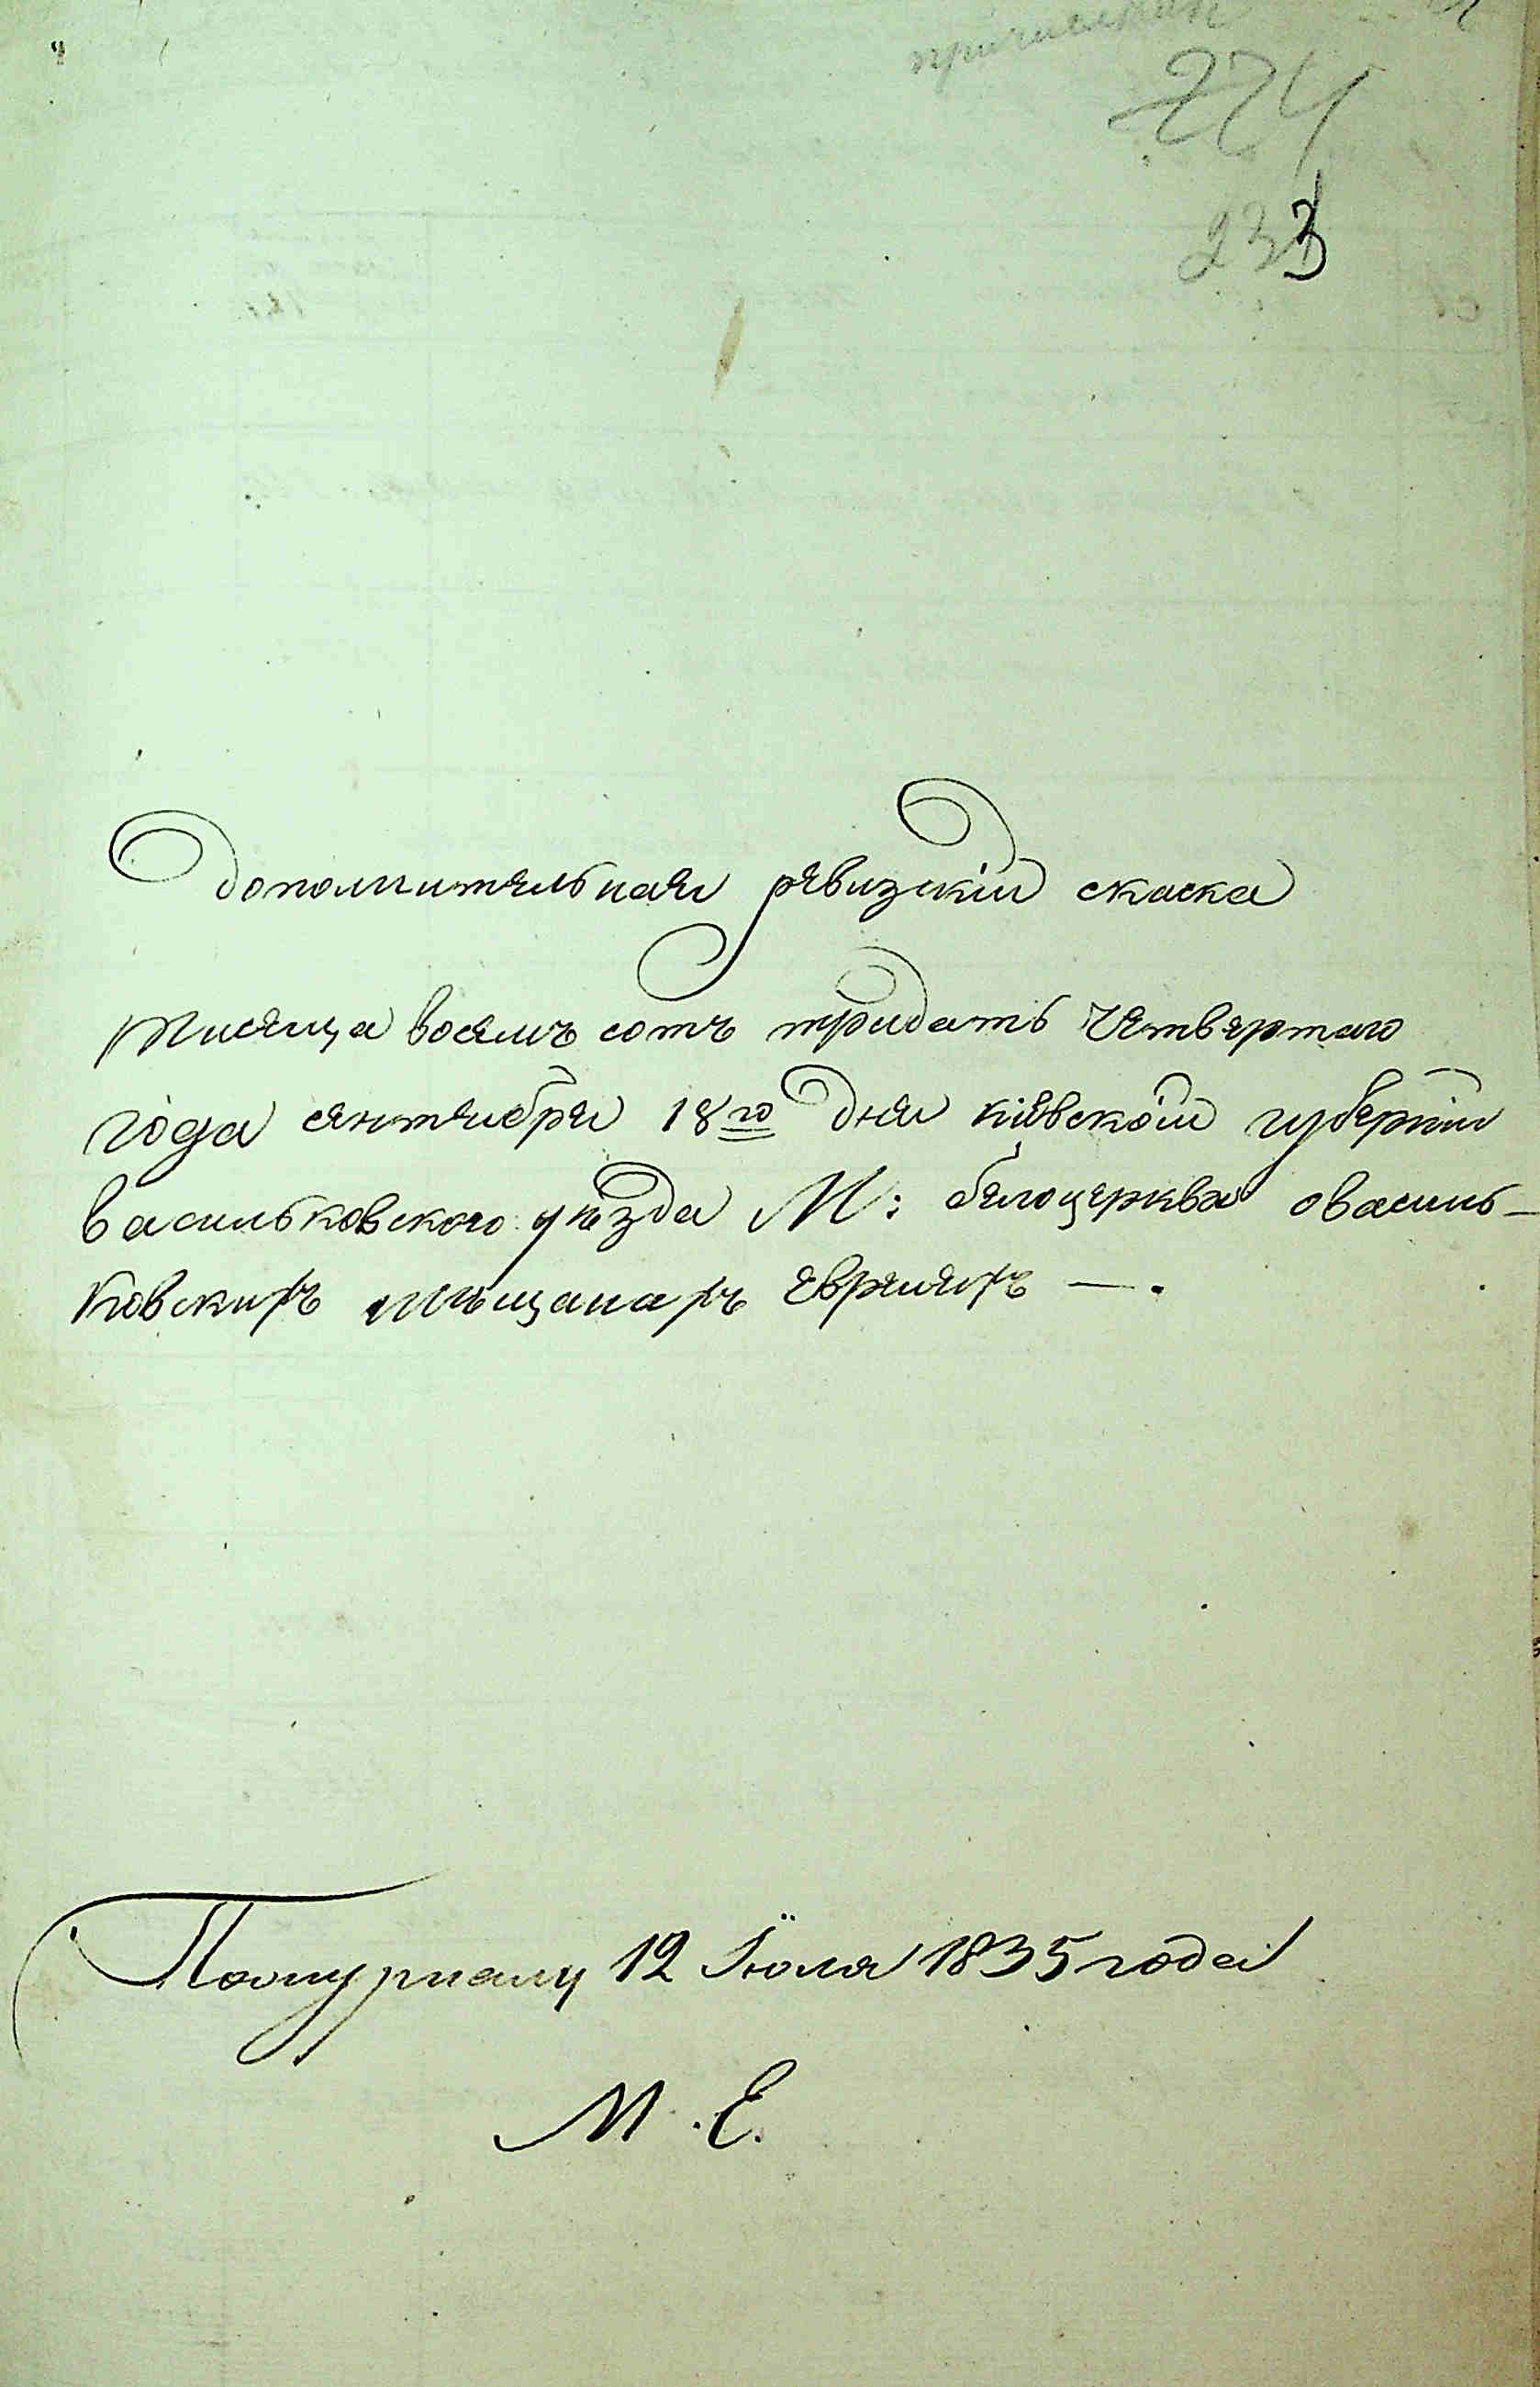 224
233
Дополнительная ревизкій скаска
тисяща восемъ сотъ тридать Четвертаго
года сентебря 18го дня кіевской губерніи
васильковского уѣзда М: белоцерква овасиль-
ковскихъ мѣщанахъ евреяхъ —.
12 Іюля 1835 года
М. Е.